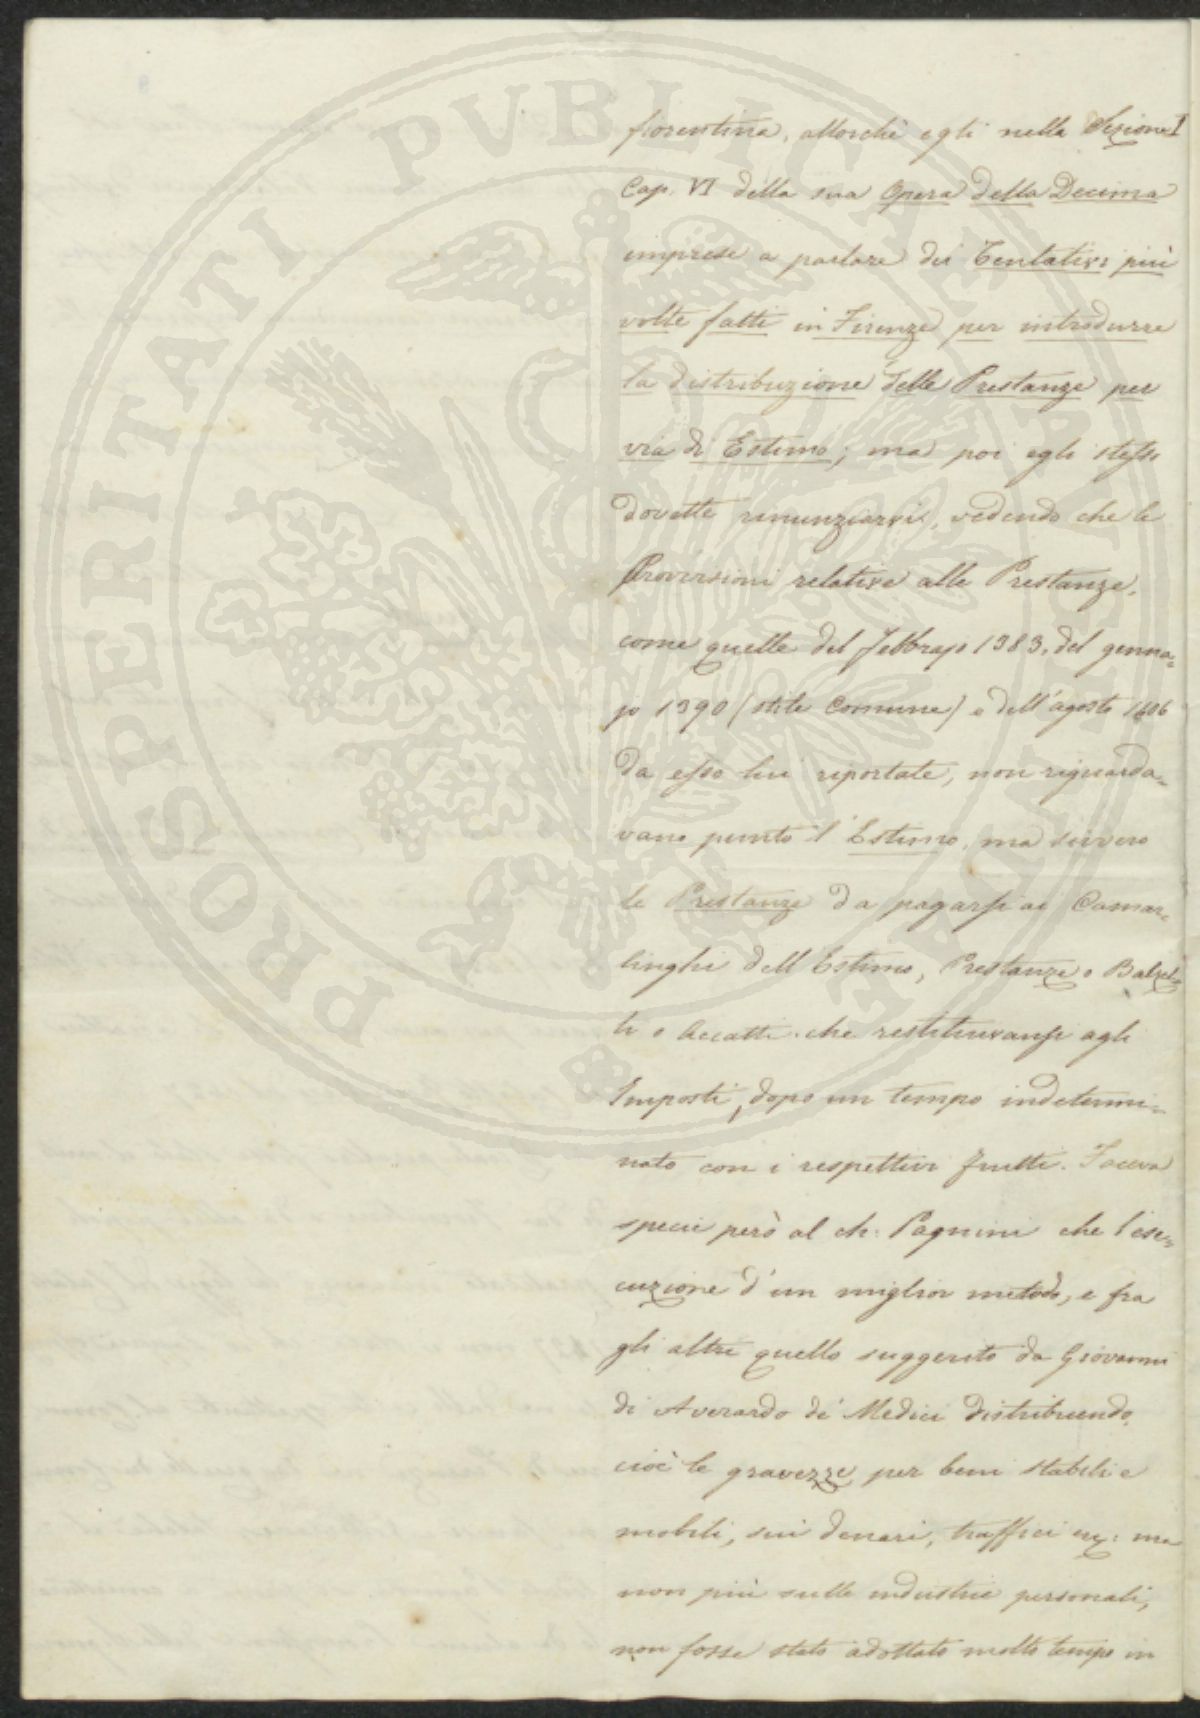 fiorentina, allorchè egli nella Sezione I
Cap. VI della sua Opera della Decima
imprese a parlare dei Tentativi più
volte fatti in Firenze per introdurre
la distribuzione delle Prestanze per
via di Estimo; ma poi egli stesso
dovette rinunziarvi, vedendo che le
Provvisioni relative alle Prestanze,
come quelle del febbrajo 1383, del genna=
jo 1390 (stile Comune) e dell'agosto 1406
da esso lui riportate, non riguarda=
vano punto l'Estimo, ma sivvero
le Prestanze da pagarsi ai Camar=
linghi dell'Estimo, Prestanze o Balzel=
li o Accatti che restituivansi agli
Imposti, dopo un tempo indetermi=
nato con i respettivi frutti. Faceva
specie però al ch: Pagnini che l'ese=
cuzione d'un miglior metodo, e fra
gli altri quello suggerito da Giovanni
di Averardo de' Medici distribuendo,
cioè le gravezze per beni stabili e
mobili, sui denari, traffici ec: ma
non più sulle industrie personali,
non fosse stato adottato molto tempo in
PROSPERITATI PVBLICAE AVGENDAE